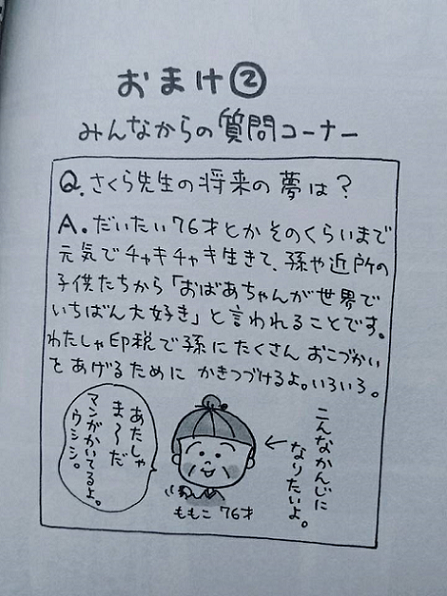 おまけ②
みんなからの質問コーナー
Q.さくら先生の将来の夢は？
A.だいたい76才とかそのくらいまで
元気でチャキチャキ生きて、孫や近所の
子供たちから「おばあちゃんが世界で
いちばん大好き」と言われることです。
わたしゃ印税で孫にたくさんおこづかい
をあげるためにかきつづけるよ。いろいろ。
こんなかんじに
なりたいよ。
←
あたしゃ
ま〜だ
マンガかいてるよ。
ウシシ。
ももこ 76才